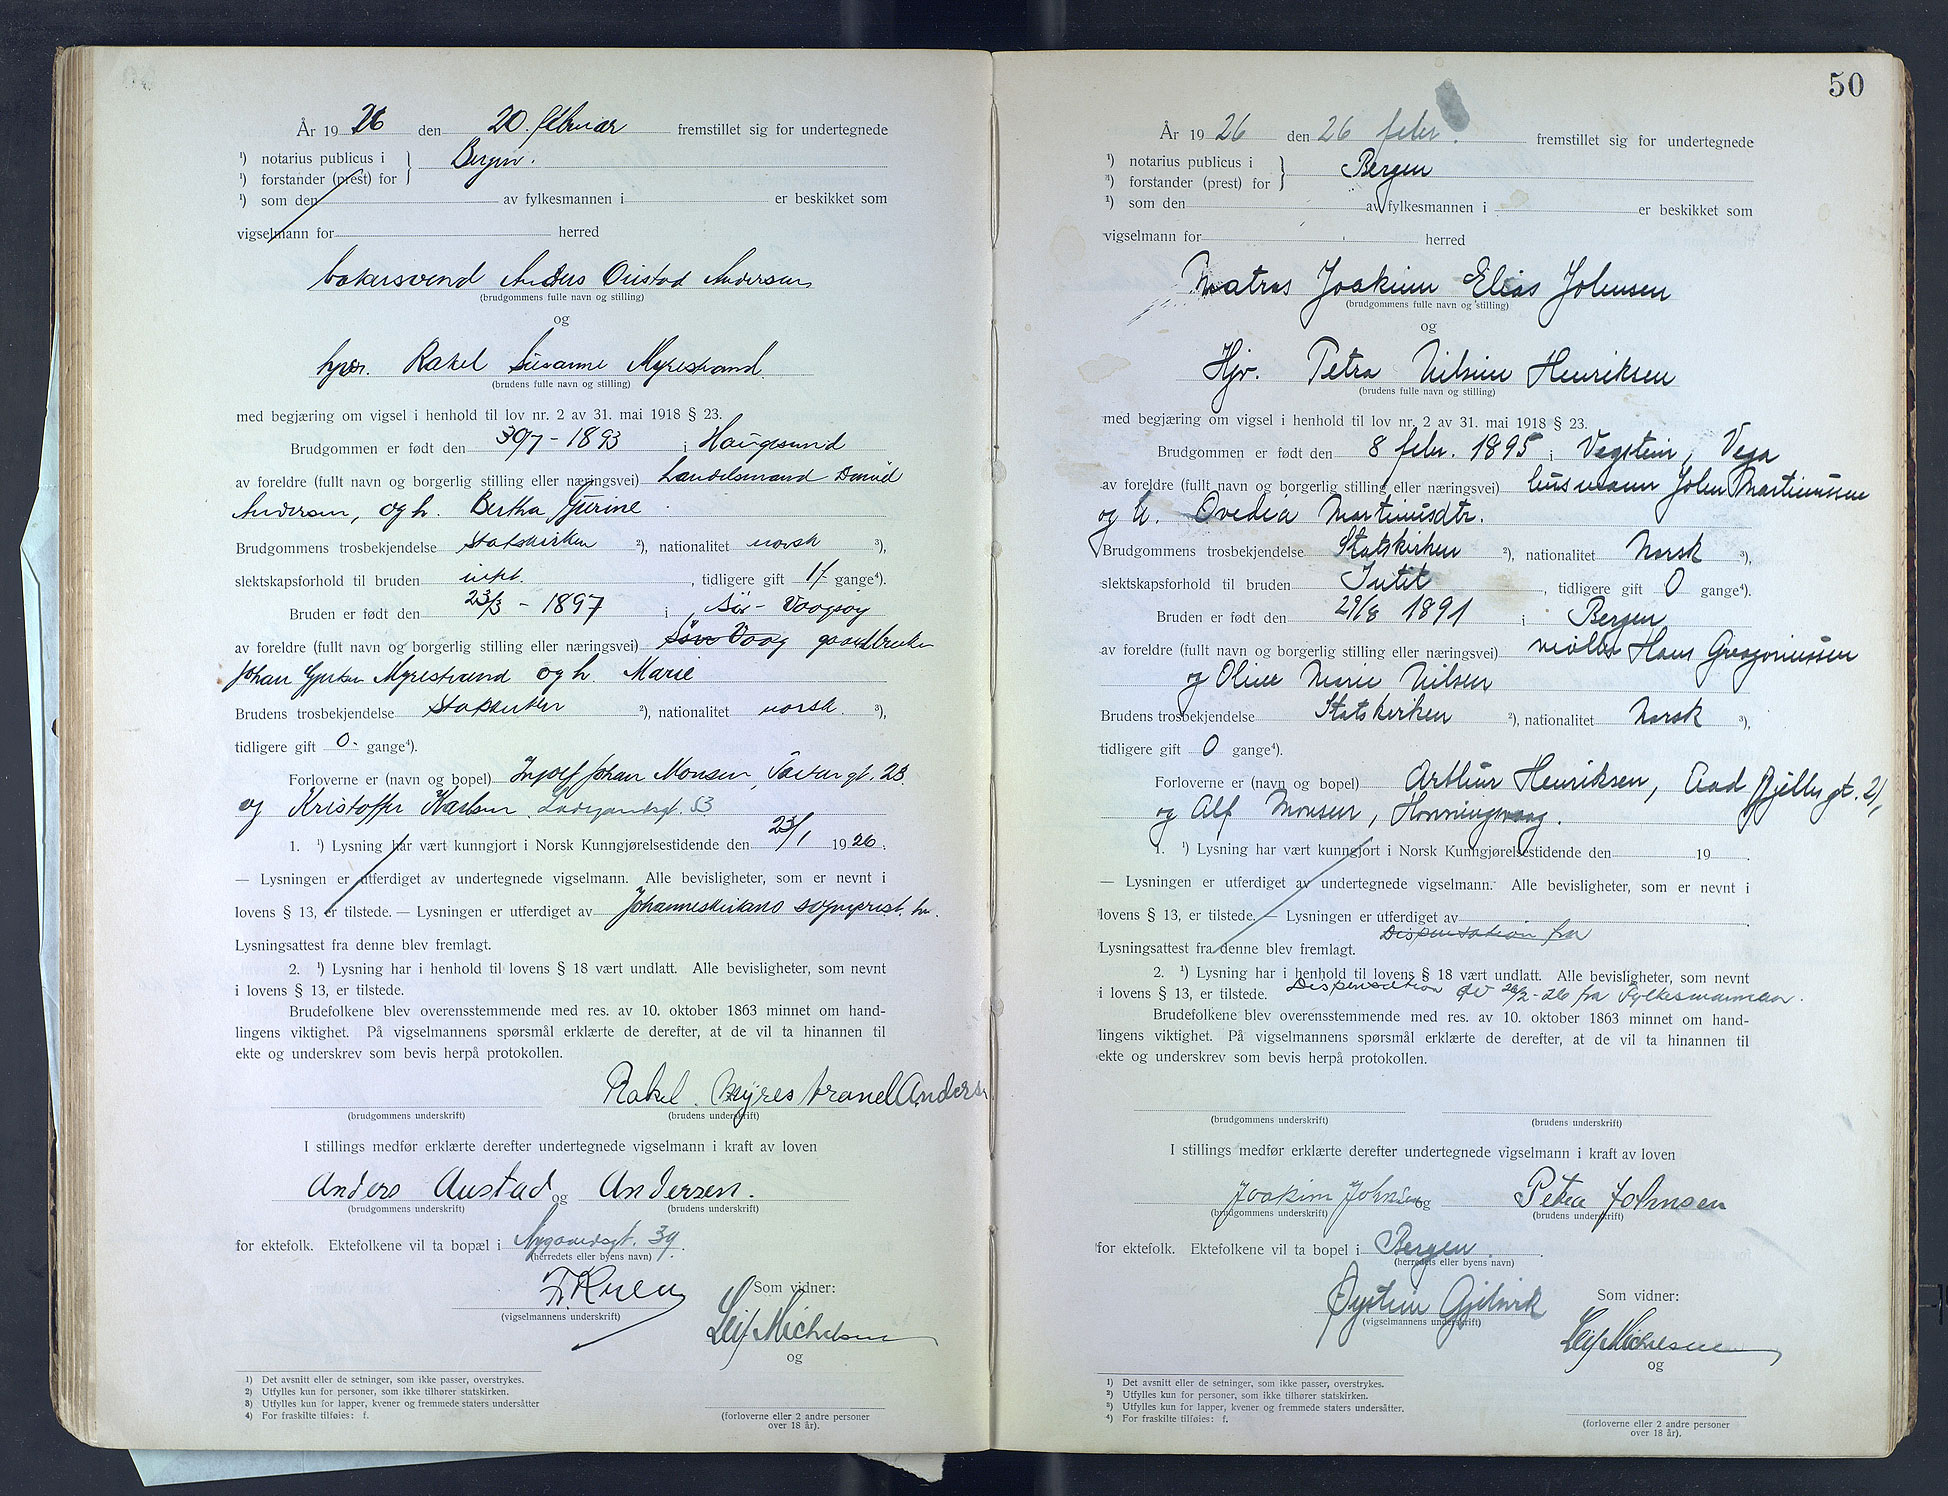 År 19 26 den 20. februar fremstillet sig for undertegnede
¹) notarius publicus i } Bergen.
¹) forstander (prest) for
¹) som den av fylkesmannen i er beskikket som
vigselmann for herred
bakersvend Anders Austad Andersen
(brudgommens fulle navn og stilling)
og
hjv. Rakel Susanne Myrestrand
(brudens fulle navn og stilling)
med begjæring om vigsel i henhold til lov nr. 2 av 31. mai 1918 § 23.
Brudgommen er født den 30/7 - 1893 i Haugesund
av foreldre (fullt navn og borgerlig stilling eller næringsvei) Handelsmand David
Andersen, og h. Bertha Gurine
Brudgommens trosbekjendelse Statskirken ²), nationalitet norsk ³),
slektskapsforhold til bruden intet. , tidligere gift 1 gange⁴).
Bruden er født den 23/3 - 1897 i Sør-Vaagsøy
av foreldre (fullt navn og borgerlig stilling eller næringsvei) Søre Vaag gaardbruker
Johan Myrestrand og h. Marie
Brudens trosbekjendelse Statskirken ²), nationalitet norsk. ³),
tidligere gift 0. gange⁴).
Forloverne er (navn og bopel) Ingolf Johan Monsen, gt. 23
og Kristoffer Karlsen, Ladegaardsgt. 53
1. ¹) Lysning har vært kunngjort i Norsk Kunngjørelsestidende den 23/1 19 26.
— Lysningen er utferdiget av undertegnede vigselmann. Alle bevisligheter, som er nevnt i
lovens § 13, er tilstede. — Lysningen er utferdiget av Johanneskirkens sogneprest. hv.
Lysningsattest fra denne blev fremlagt.
2. ¹) Lysning har i henhold til lovens § 18 vært undlatt. Alle bevisligheter, som nevnt
i lovens § 13, er tilstede.
Brudefolkene blev overensstemmende med res. av 10. oktober 1863 minnet om hand-
lingens viktighet. På vigselmannens spørsmål erklærte de derefter, at de vil ta hinannen til
ekte og underskrev som bevis herpå protokollen.
Rakel. Myrestrand Andersen
(brudgommens underskrift) (brudens underskrift)
I stillings medfør erklærte derefter undertegnede vigselmann i kraft av loven
Anders Austad og Andersen.
(brudgommens underskrift) (brudens underskrift)
for ektefolk. Ektefolkene vil ta bopæl i Nygaardsgt. 39.
(herredets eller byens navn)
Som vidner:
(vigselmannens underskrift)
Leif Michelsen
og
1) Det avsnitt eller de setninger, som ikke passer, overstrykes.
2) Utfylles kun for personer, som ikke tilhører statskirken.
3) Utfylles kun for lapper, kvener og fremmede staters undersåtter
4) For fraskilte tilføies: f.
(forloverne eller 2 andre personer
over 18 år).
50
År 19 26 den 26 febr. fremstillet sig for undertegnede
¹) notarius publicus i } Bergen
¹) forstander (prest) for
¹) som den av fylkesmannen i er beskikket som
vigselmann for herred
Matros Joakim Elias Johnsen
(brudgommens fulle navn og stilling)
og
Hjv. Petra Nilsine Henriksen
(brudens fulle navn og stilling)
med begjæring om vigsel i henhold til lov nr. 2 av 31. mai 1918 § 23.
Brudgommen er født den 8 febr. 1895 i Vegstein, Vega
av foreldre (fullt navn og borgerlig stilling eller næringsvei) husmann John Martinussen
og h. Ovedia Martinusdtr.
Brudgommens trosbekjendelse Statskirken ²), nationalitet Norsk ³),
slektskapsforhold til bruden Intet , tidligere gift 0 gange⁴).
Bruden er født den 29/8 1891 i Bergen
av foreldre (fullt navn og borgerlig stilling eller næringsvei) møller Hans Gregoriussen
og Oline Marie Nilsen
Brudens trosbekjendelse Statskirken ²), nationalitet Norsk ³),
tidligere gift 0 gange⁴).
Forloverne er (navn og bopel) Arthur Henriksen, Aad Gjelles gt. 21,
og Alf Monsen, Honningsvaag.
1. ¹) Lysning har vært kunngjort i Norsk Kunngjørelsestidende den 19 .
— Lysningen er utferdiget av undertegnede vigselmann. Alle bevisligheter, som er nevnt i
lovens § 13, er tilstede. — Lysningen er utferdiget av
Dispensation fra
Lysningsattest fra denne blev fremlagt.
2. ¹) Lysning har i henhold til lovens § 18 vært undlatt. Alle bevisligheter, som nevnt
i lovens § 13, er tilstede. Dispensation av 26/2-26 fra Fylkesmannen.
Brudefolkene blev overensstemmende med res. av 10. oktober 1863 minnet om hand-
lingens viktighet. På vigselmannens spørsmål erklærte de derefter, at de vil ta hinannen til
ekte og underskrev som bevis herpå protokollen.
(brudgommens underskrift) (brudens underskrift)
I stillings medfør erklærte derefter undertegnede vigselmann i kraft av loven
Joakim Johnsen og Petra Johnsen
(brudgommens underskrift) (brudens underskrift)
for ektefolk. Ektefolkene vil ta bopel i Bergen.
(herredets eller byens navn)
Øystein Gjelsvik Som vidner:
(vigselmannens underskrift)
Leif Michelsen
og
1) Det avsnitt eller de setninger, som ikke passer, overstrykes.
2) Utfylles kun for personer, som ikke tilhører statskirken.
3) Utfylles kun for lapper, kvener og fremmede staters undersåtter.
4) For fraskilte tilføies: f.
(forloverne eller 2 andre personer
over 18 år).